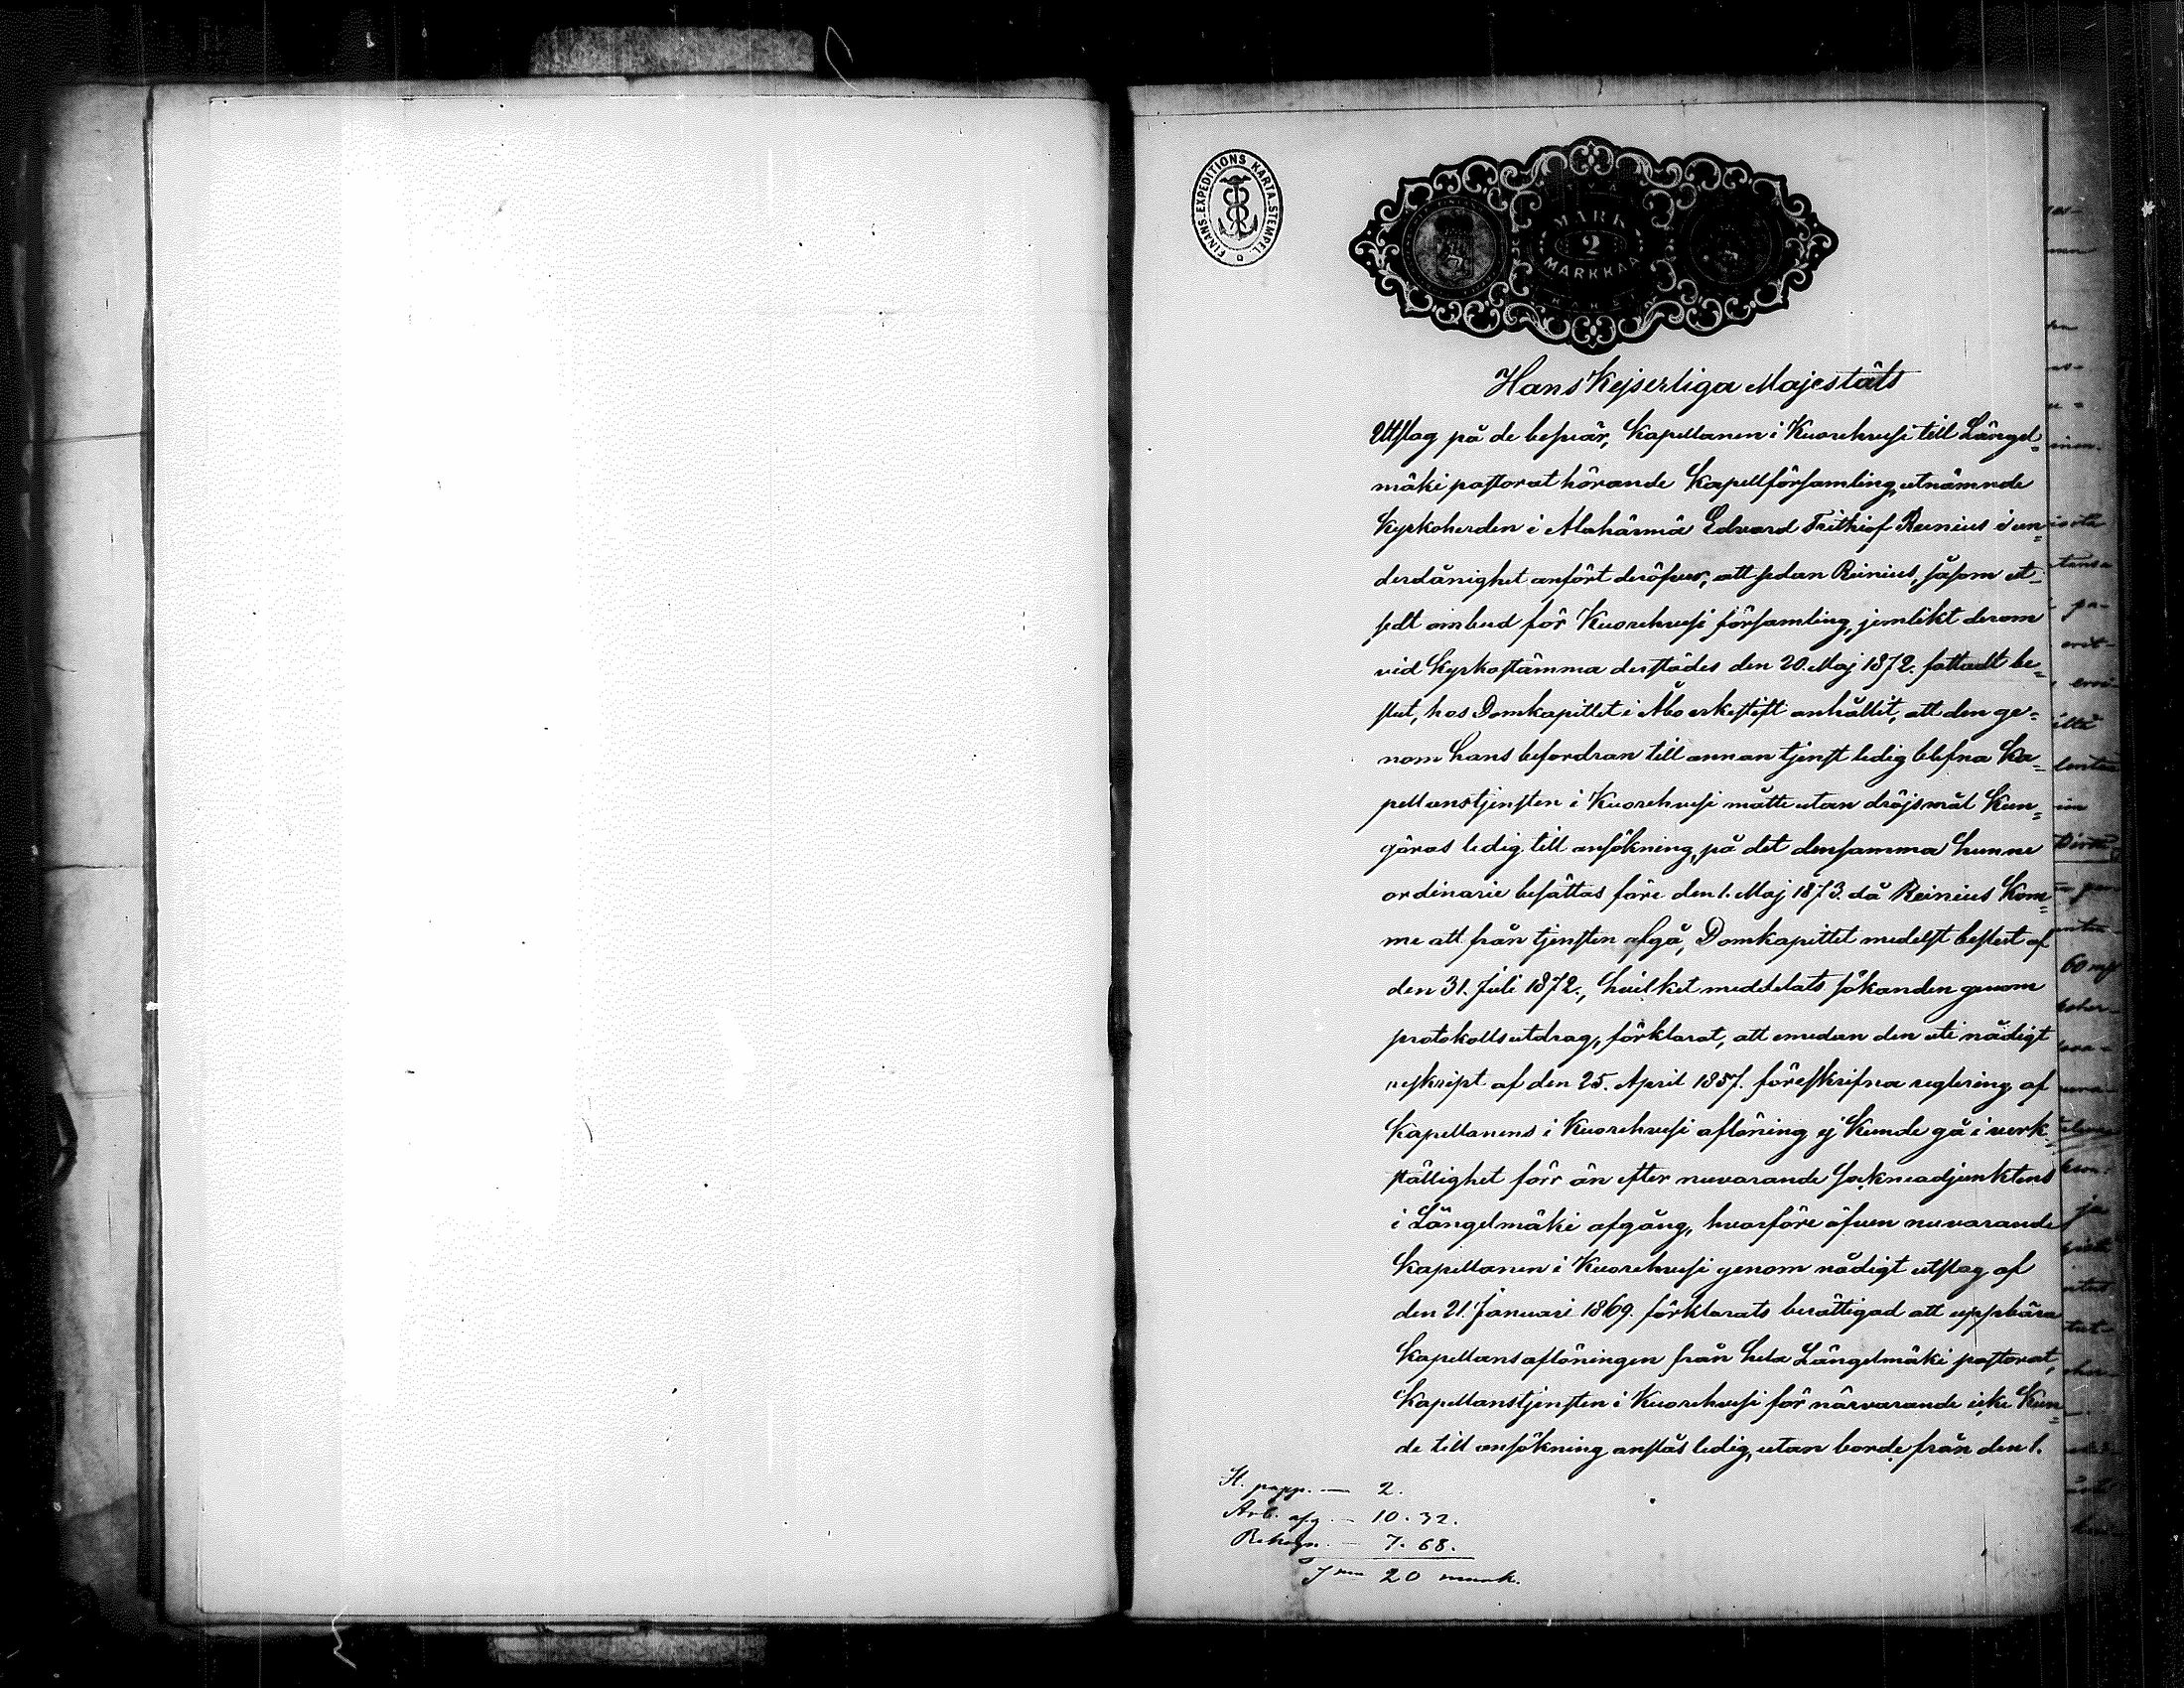 FINANS.EXPEDITIONS KARTA.STEMPEL
MARK
2
MARKKAA
Hans Kejserliga Majestäts
Utslag på de besvär, Kapellanen i Kuorehvesi till Längel=
mäki pastorat hörande Kapellförsamling, utnämnde
Kyrkoherden i Alahärmä Edvard Frithiof Reinius i un=
derdånighet anfört deröfver, att sedan Reinius, såsom ut=
sedt ombud för Kuorehvesi församling, jemlikt derom
vid Kyrkostämma derstädes den 20. Maj 1872. fattadt be=
slut, hos Domkapitlet i Åbo erkestift anhållit, att den ge=
nom hans befordran till annan tjenst ledig blefna Ka=
pellanstjensten i Kuorehvesi måtte utan dröjsmål Kun=
göras ledig till ansökning, på det densamma hunne
ordinarie besättas före den 1. Maj 1873. då Reinius Kom=
me att från tjensten afgå, Domkapitlet medelst beslut af
den 31. Juli 1872., hvilket meddelats sökanden genom
protokollsutdrag, förklarat, att emedan den uti nådigt
reskript af den 25. April 1857. föreskrifna reglering af
Kapellanens i Kuorehvesi aflöning ej Kunde gå i verk=
ställighet förr än efter nuvarande Sockneadjunktens
i Längelmäki afgång, hvarföre äfven nuvarande
Kapellanen i Kuorehvesi genom nådigt utslag af
den 21. Januari 1869. förklarats berättigad att uppbära
Kapellansaflöningen från hela Längelmäki pastorat,
Kapellanstjensten i Kuorehvesi för närvarande icke Kun=
de till ansökning anslås ledig, utan borde från den 1.
St. papp. — 2.
Arb. afg. — 10. 32.
Rekogn. — 7. 68.
Sma 20 mark.